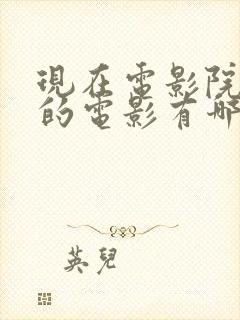 現在電影院
的電影有哪
英兒